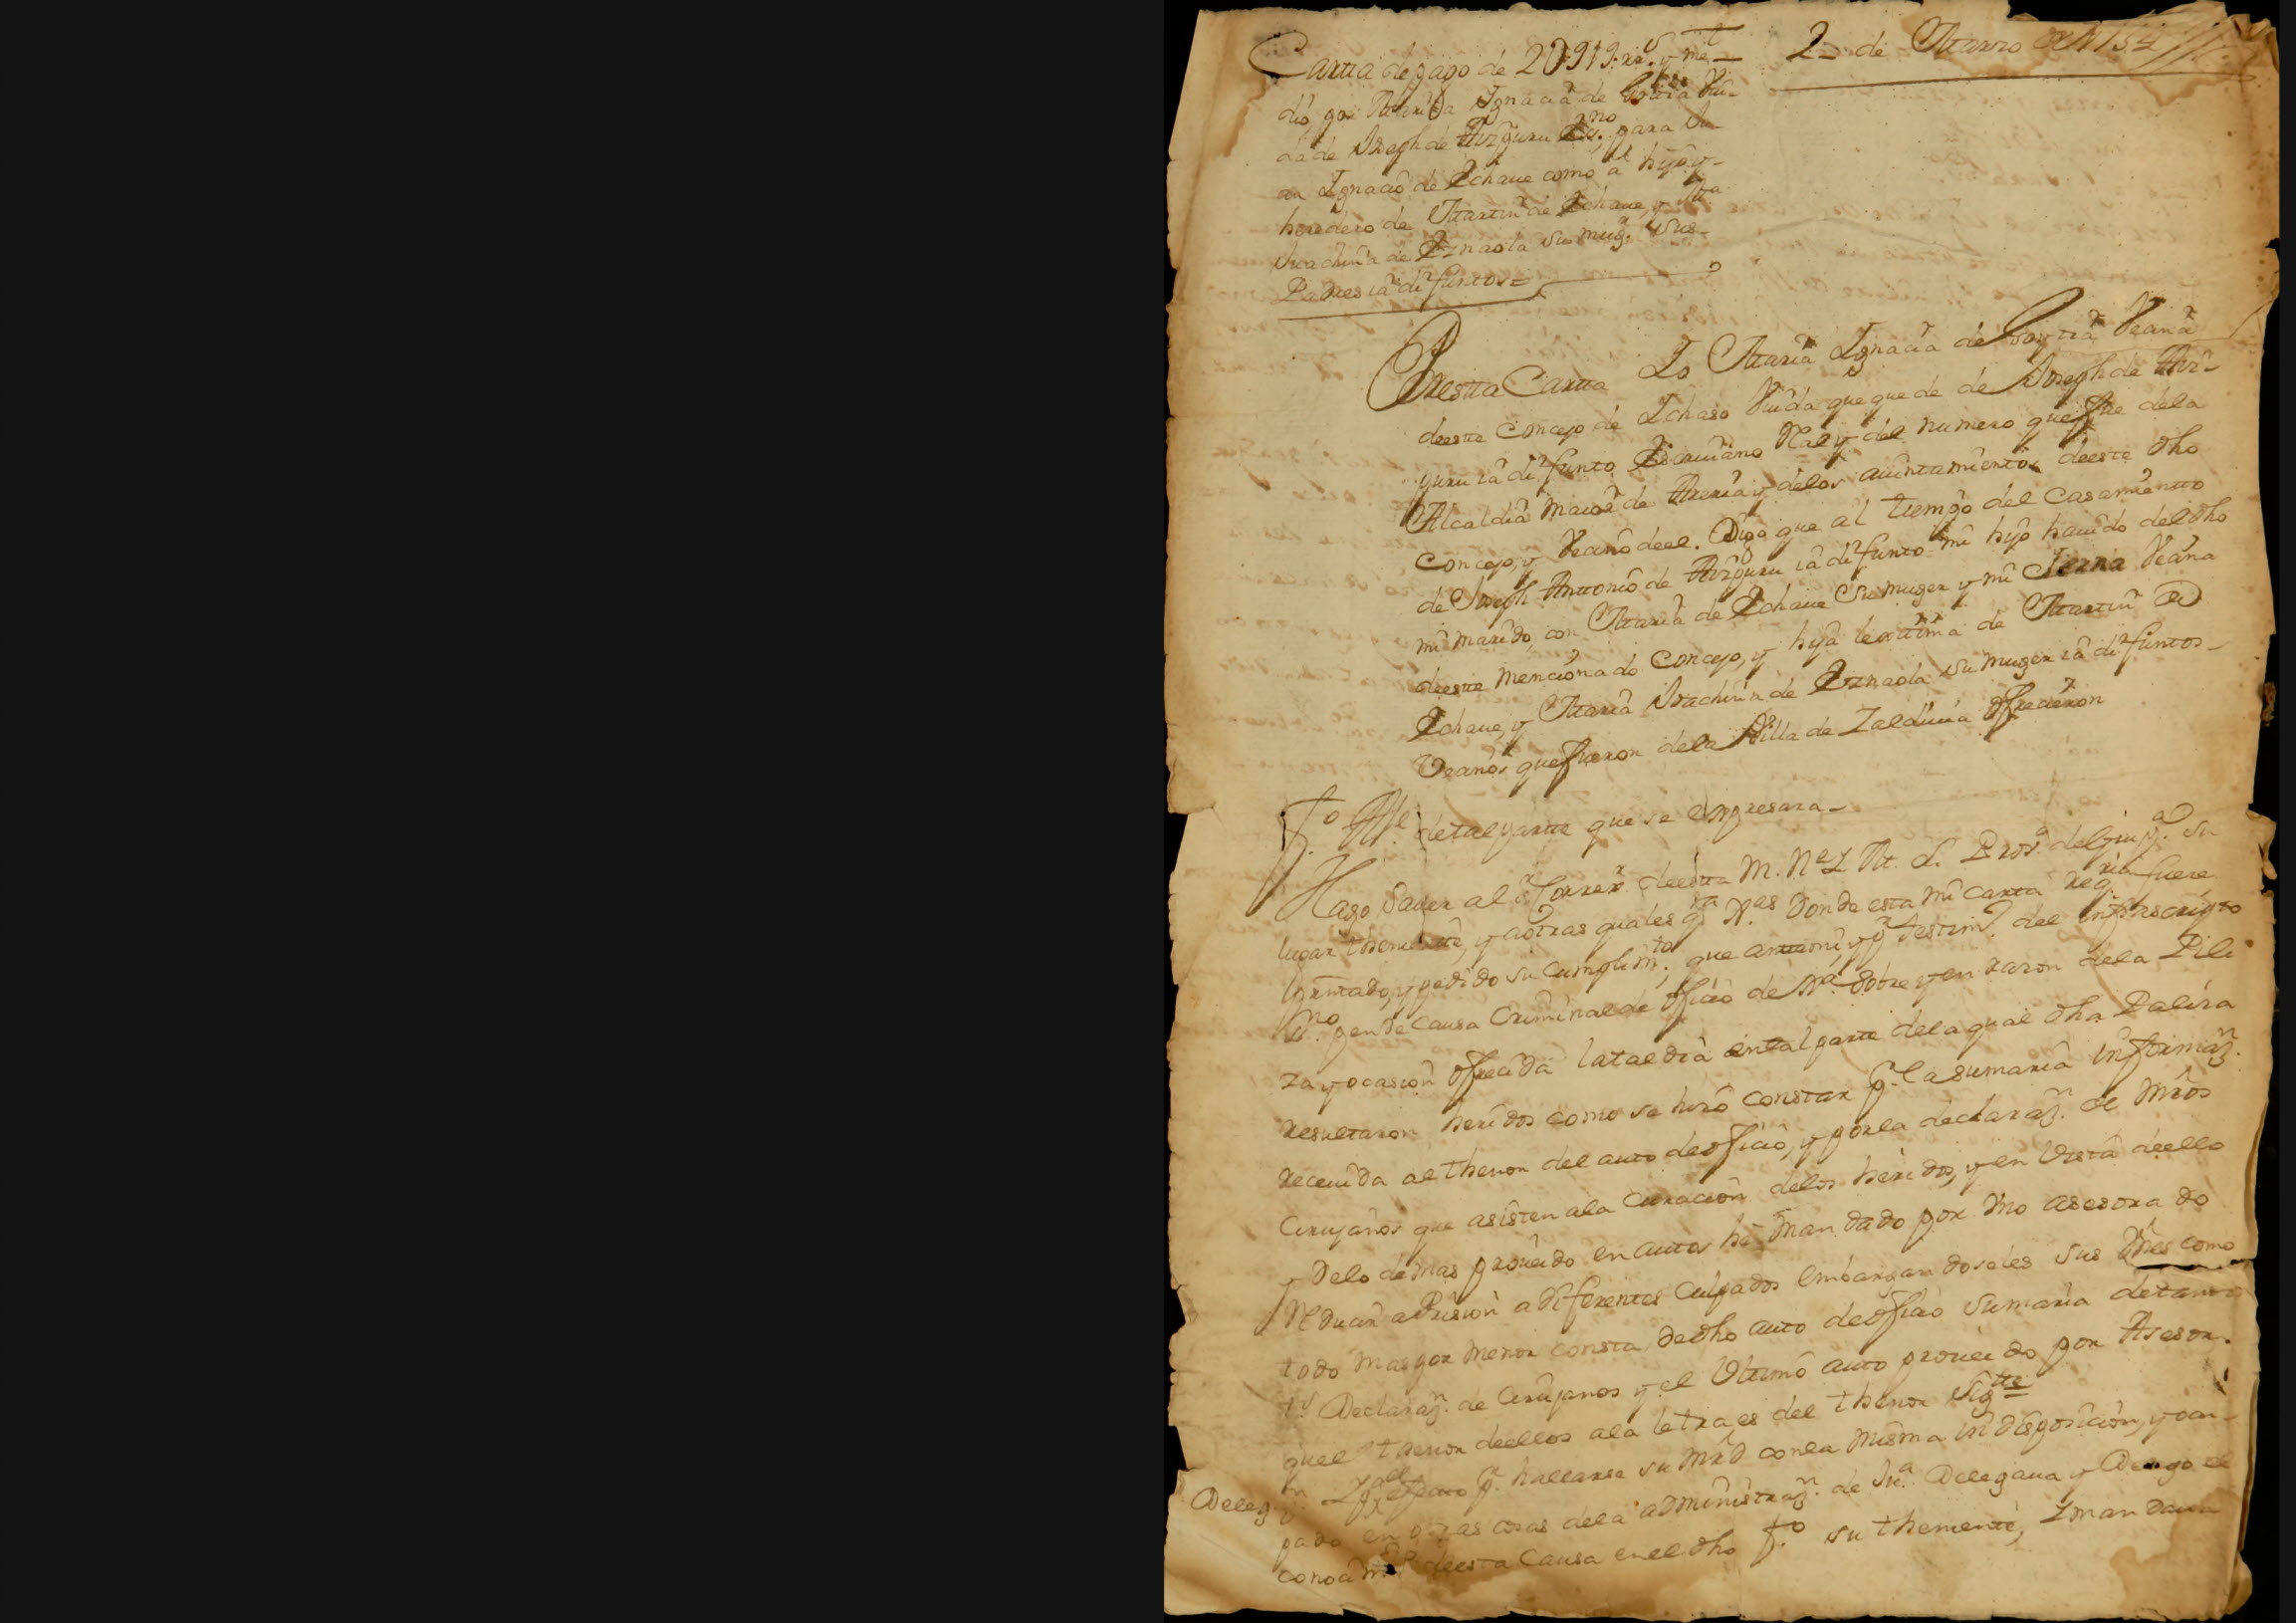 Cartta de pago de 20919 rrs. y me-
dio por Maria Ignacia de Goytia Viu-
da de Joseph de Aizpuru Essno. para Ju-
an Ignacio de Echaue como a hijo y
heredero de Martin de Echaue, y Ma.
Juachina de Eznaola su mugr. sus
Padres ia difuntos =
2 de Marzo de 1754
Por estta Cartta Io Maria Ignacia de Goytia Vecina
de este Concejo de Ichaso Viuda que quede de Joseph de Aiz-
puru ia difunto Escriuano Real y del numero que fue de la
Alcaldia maior de Areria y de los aiuntamientos de este dho
Concejo, y Vecino de el. Digo que al tiempo del Casamientto
de Joseph Anttonio de Aizpuru ia difunto mi hijo hauido del dho
mi marido, con Maria de Echaue su muger y mi Ierna Vecina
de estte mencionado Concejo, y hija lexitima de Martin de
Echaue, y Maria Joachina de Eznaola su muger ia difuntos
Vecinos que fueron de la Villa de Zaldiuia ofrecieron
Fo. Alle. de tal partte que se expresara
Hago sauer al Sr. Correxr. de estta M. N. y M. L. Proa. de Guipa. su
lugar theniente, y a otras quales qra. Jas. donde esta mi carta reqria. fuere
presentado, y pedido su cumplimto. que ante mi, y pr. testimo. del infrascripto
Sno. pende Causa Criminal de oficio de Ja. sobre y en razon de la Pili
za y ocasion ofrecida la tal dia en tal parte de la qual dha Paliza
resultaron heridos como se hizo constar pr. la sumaria informazn.
receuida al thenor del auto de oficio, y por la declarazn. de Mros
Cirujanos que asisten a la Curacion de los heridos, y en Vista de ello
y de lo demas proueido en autos he mandado por mo asesorado
Reducir a Prision a diferentes Culpados embargandoseles sus Vnes como
todo mas por menor consta de dho auto de oficio sumaria de tantos
ts. Declarazn. de Cirujanos y el Vltimo auto proueido por Asesor.
que el thenor de ellos a la letra es del thenor Sigtte
Deleg
y pr. hallarse su Mrd con la misma indisposicion, y ocu-
pado en otras cosas de la administrazn. de Jua. Delegaua y Delego el
conocimto. de esta Causa en el dho fo. su theniente, y mandaua